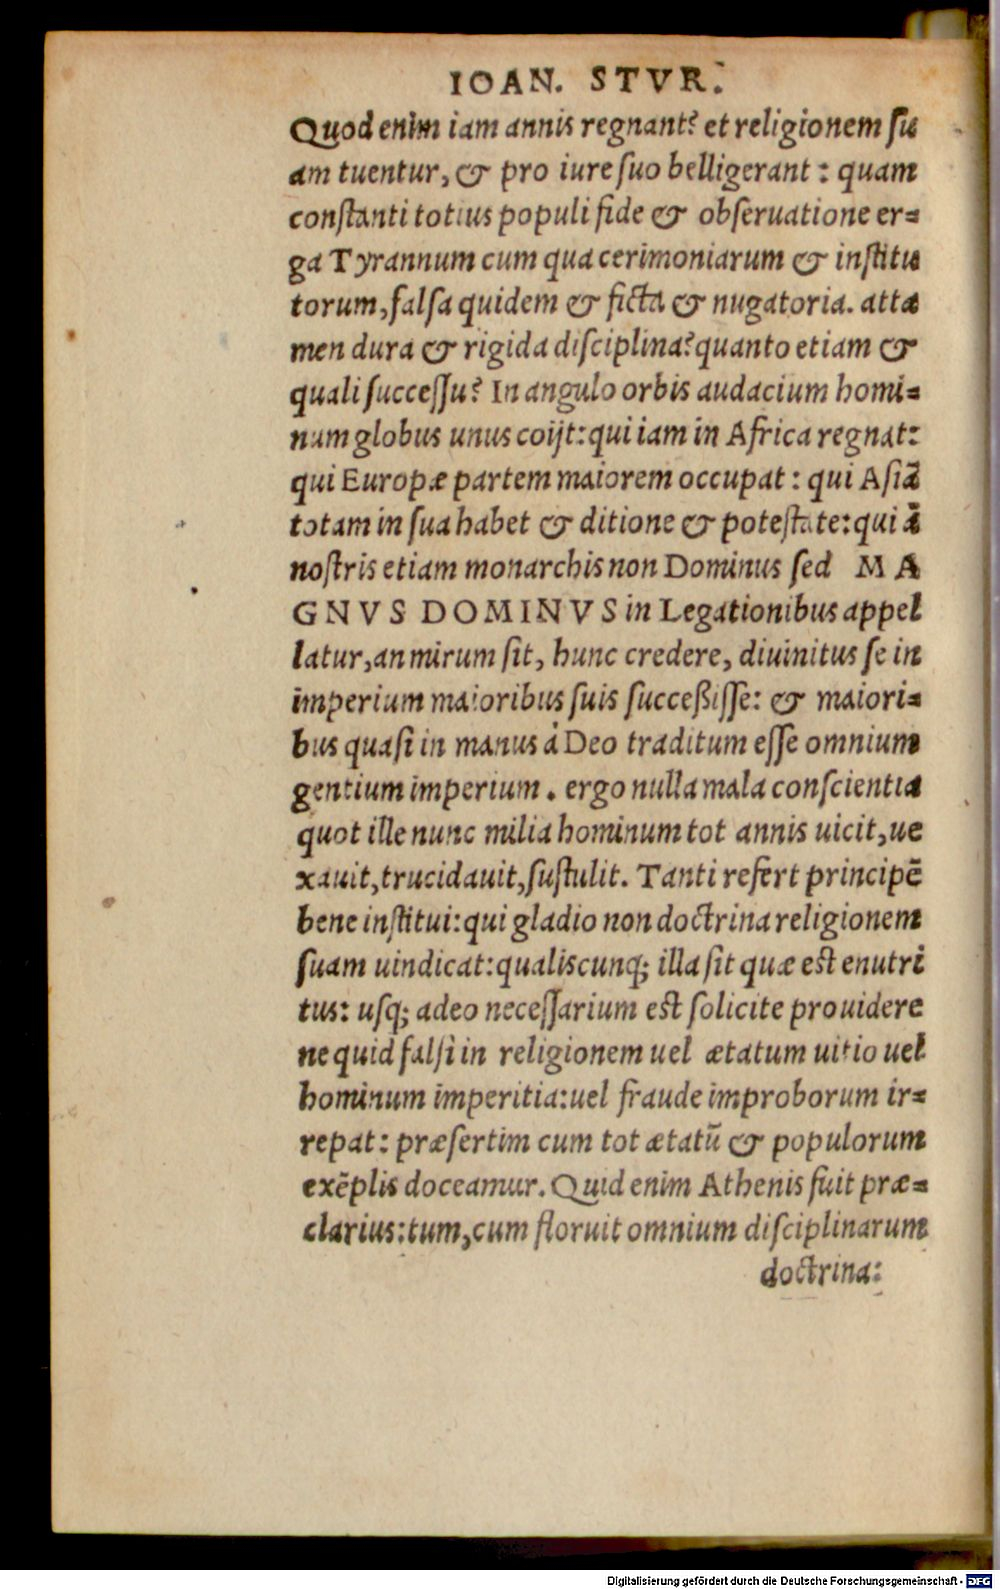 IOAN. STVR.
Quod enim iam annis regnant? et religionem su
am tuentur, & pro iure suo belligerant: quam
constanti totius populi fide & obseruatione er=
ga Tyrannum cum qua cerimoniarum & institu
torum, falsa quidem & ficta & nugatoria. atta
men dura & rigida disciplina? quanto etiam &
quali successu? In angulo orbis audacium homi=
num globus unus coijt: qui iam in Africa regnat:
qui Europæ partem maiorem occupat: qui Asiā
totam in sua habet & ditione & potestate: qui à
nostris etiam monarchis non Dominus sed MA
GNVS DOMINVS in Legationibus appel
latur, an mirum sit, hunc credere, diuinitus se in
imperium maioribus suis succeßisse: & maiori=
bus quasi in manus à Deo traditum esse omnium
gentium imperium. ergo nulla mala conscientia
quot ille nunc milia hominum tot annis uicit, ue
xauit, trucidauit, sustulit. Tanti refert principē
bene institui: qui gladio non doctrina religionem
suam uindicat: qualiscunq; illa sit quæ est enutri
tus: usq; adeo necessarium est solicite prouidere
ne quid falsi in religionem uel ætatum uitio uel
hominum imperitia: uel fraude improborum ir=
repat: præsertim cum tot ætatū & populorum
exēplis doceamur. Quid enim Athenis fuit præ=
clarius: tum, cum floruit omnium disciplinarum
doctrina:
Digitalisierung gefördert durch die Deutsche Forschungsgemeinschaft - DFG